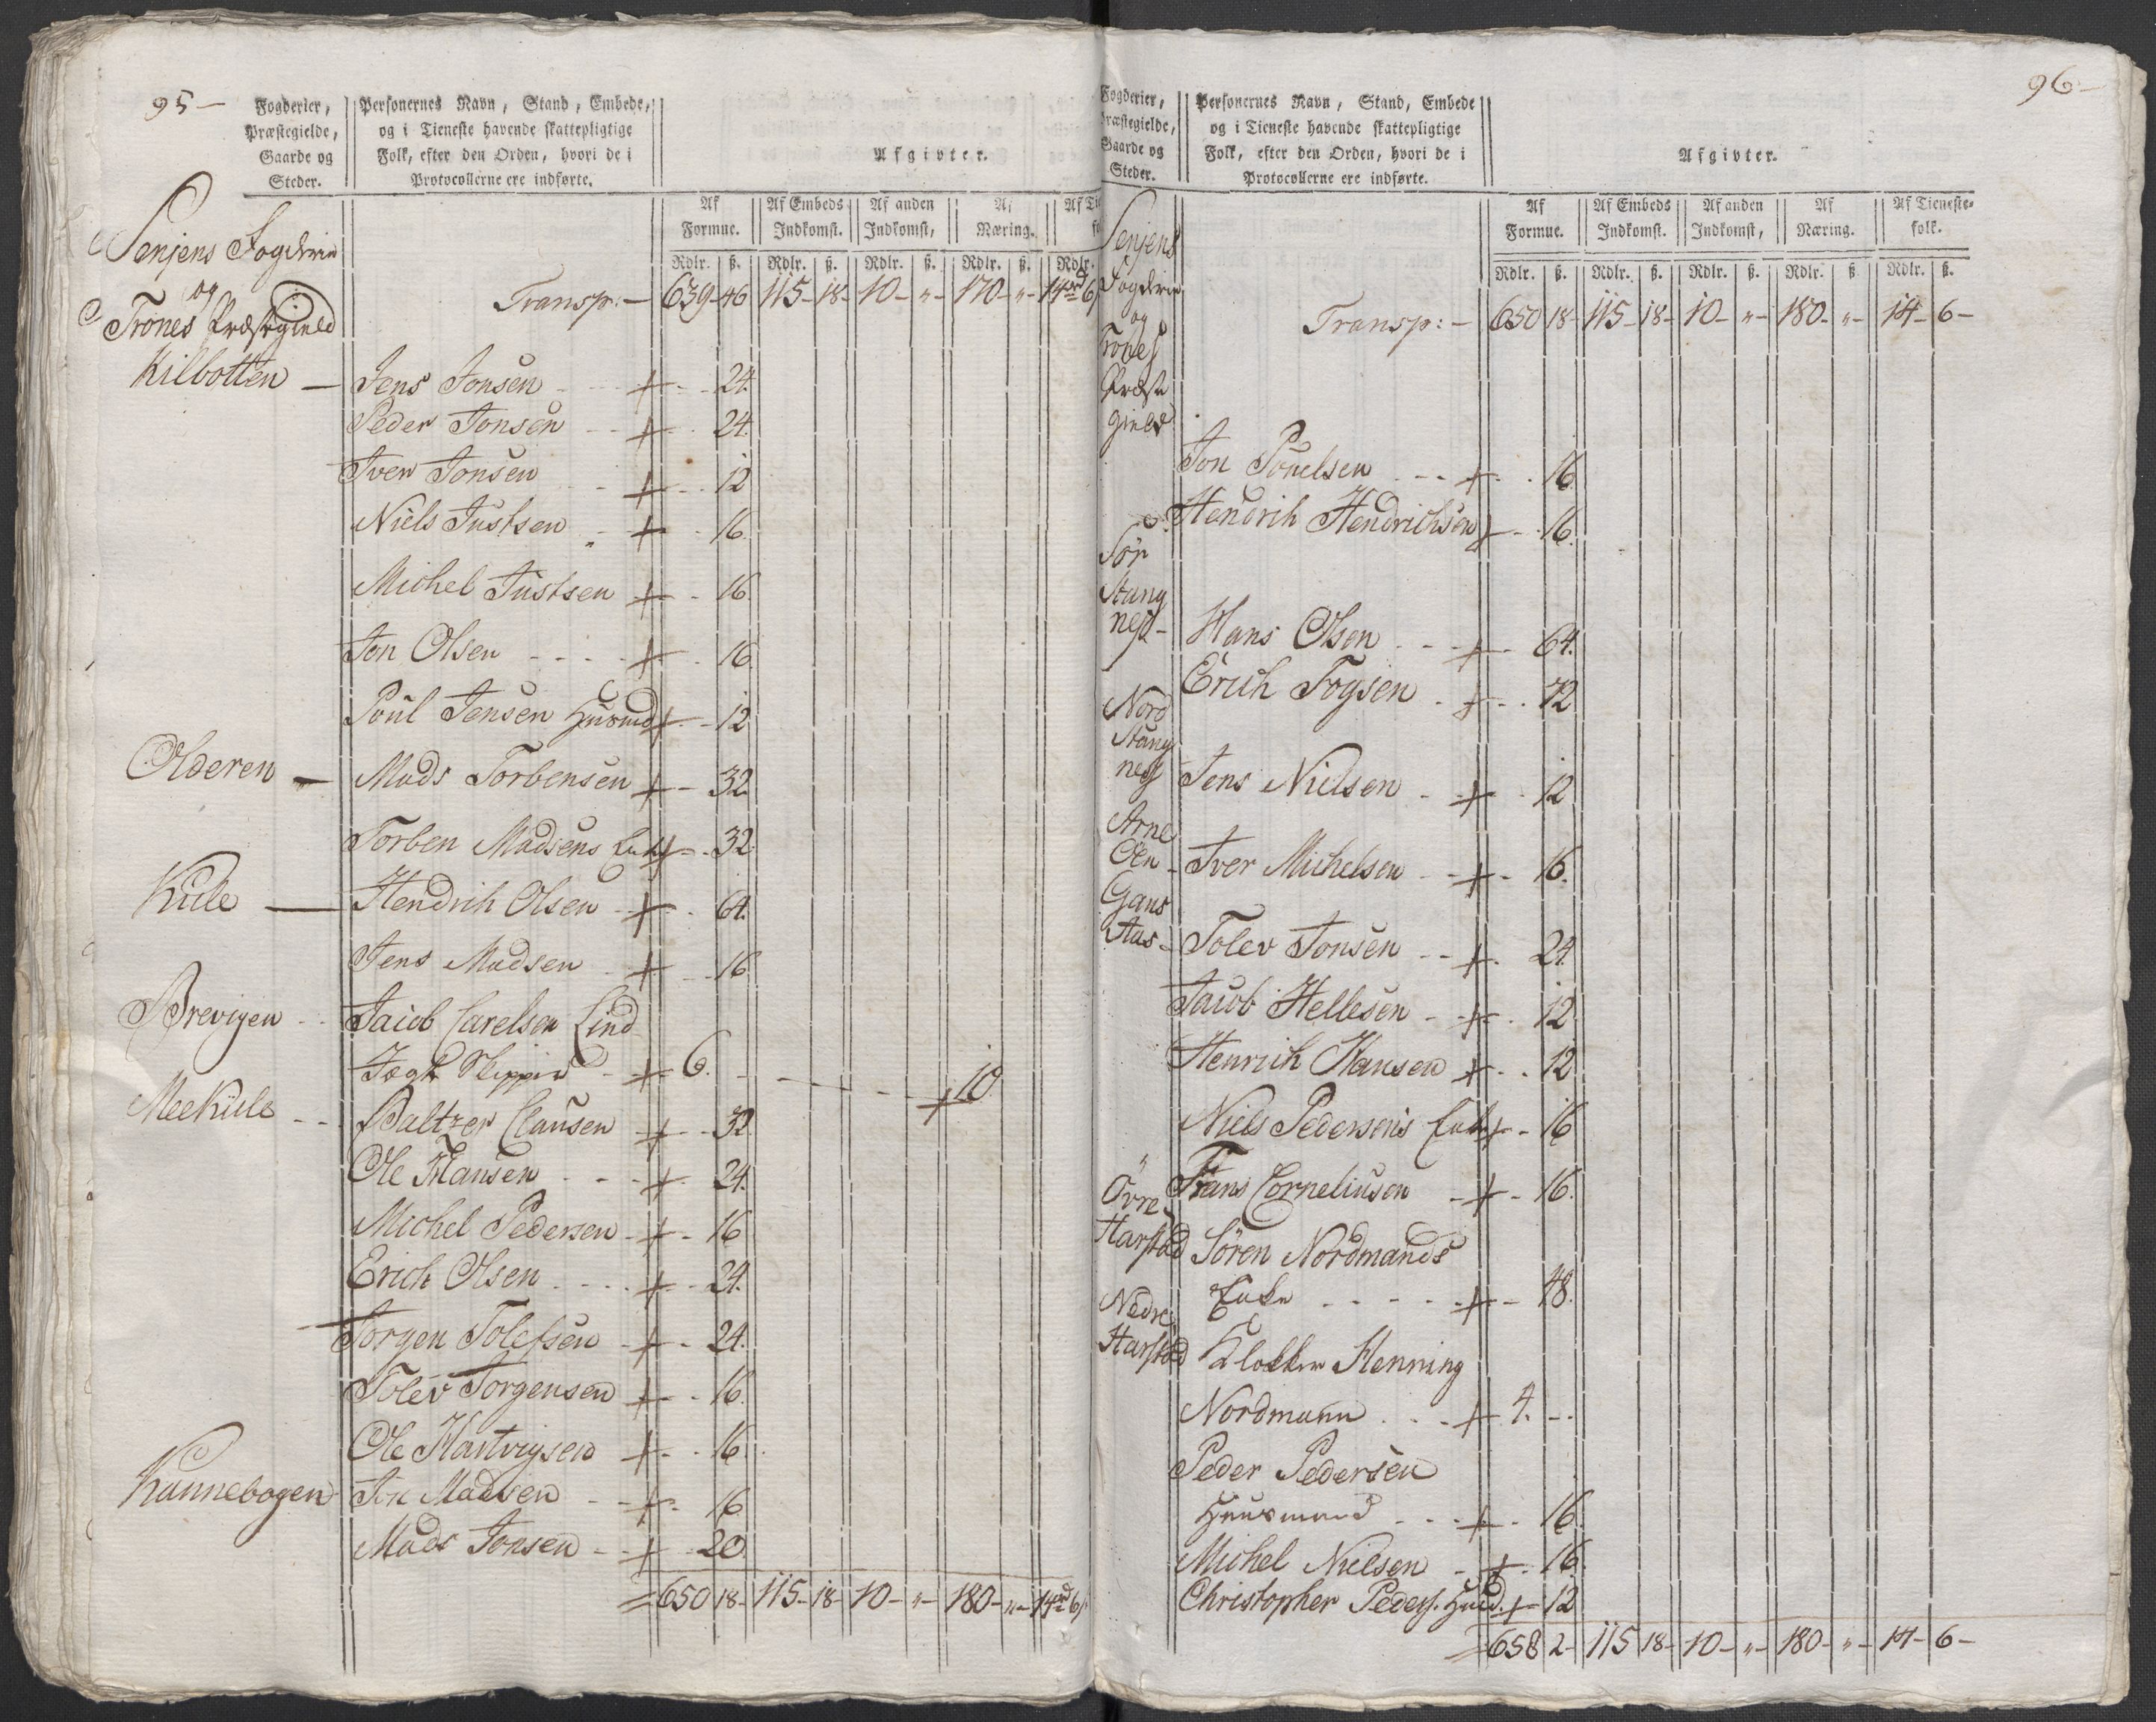 95 —
Fogderier, Præstegielde, Gaarde og Steder.
Personernes Navn, Stand, Embede, og i Tieneste havende skattepligtige Folk, efter den Orden, hvori de i Protocollerne ere indførte.
Afgivter.
Af Formue. Af Embeds Indkomst. Af anden Indkomst, Af Næring. Af Tie
Rdlr. ß. Rdlr. ß. Rdlr. ß. Rdlr. ß. Rdlr.
Senjens Fogderie
og
Trones Præstegield
Transp: — 639 - 46 115 - 18 - 10 - " - 170 - " - 14 rd 6
Kilbotten — Jens Jonsen + 24.
Peder Jonsen + 24.
Iver Jonsen + 12
Niels Justsen + 16.
Michel Justsen + 16.
Jon Olsen + 16.
Poul Jensen Huusmd + 12
Olderen — Mads Torbensen + 32
Torben Madsens Enke + 32.
Kiile — Hendrich Olsen + 64.
Jens Madsen + 16.
Brevigen Jacob Carelsen Lind
Jægt Skipper + 6. + 10
Meekiile Baltzer Clausen + 32.
Ole Hansen + 24.
Michel Pedersen + 16
Erich Olsen + 24.
Jorgen Tolefsen + 24.
Tolev Jorgensen + 16.
Ole Hartvigsen + 16.
Kannebogen Jon Madsen + 16
Mads Jonsen + 20.
= 650 18 - 115 - 18 - 10 - " - 180 - " - 14 rd 6
96 —
Fogderier, Præstegielde, Gaarde og Steder.
Personernes Navn, Stand, Embede og i Tieneste havende skattepligtige Folk, efter den Orden, hvori de i Protocollerne ere indførte.
Afgivter.
Af Formue. Af Embeds Indkomst. Af anden Indkomst, Af Næring. Af Tieneste-folk.
Rdlr. ß. Rdlr. ß. Rdlr. ß. Rdlr. ß. Rdlr. ß.
Senjens
Fogderie
og
Trones
Præste
gield
Transp: — 650 18 - 115 - 18 - 10 - " - 180 - " - 14 - 6 —
Jon Pouelsen + 16
Hendrich Hendrichsen + 16.
Sør
Stang
nes — Hans Olsen + 64.
Erich Fogsen + 72
Nord
Stang
nes Jens Nielsen + 12
Arne
Øen - Iver Michelsen + 16.
Gans
Aas - Tolev Jonsen + 24.
Jacob Hellesen + 12
Henrich Hansen + 12
Niels Pedersens Enke + 16
Frans Corneliusen + 16.
Övre
Harstad Sören Nordmands
Enke + 48.
Nedre
Harstad Klokker Henning
Nordmann + 4. -
Peder Pedersen
Huusmand + 16
Michel Nielsen + 16.
Christopher Peders. Husmd. + 12
= 658 2 - 115 18 - 10 - " - 180 - " - 14 - 6 —